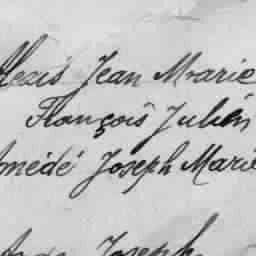 Alexis Jean Marie
François Julien
Amédé Joseph Marie
Joseph